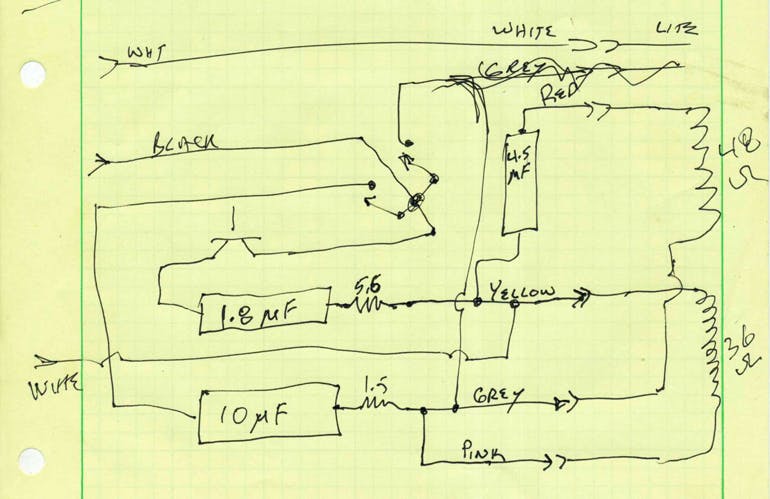 WHITE
LITE
WHT
GREY
RED
BLACK
4.5
µF
48
Ω
5.6
YELLOW
1.8 µF
36
Ω
WHITE
1.5
10 µF
GREY
PINK